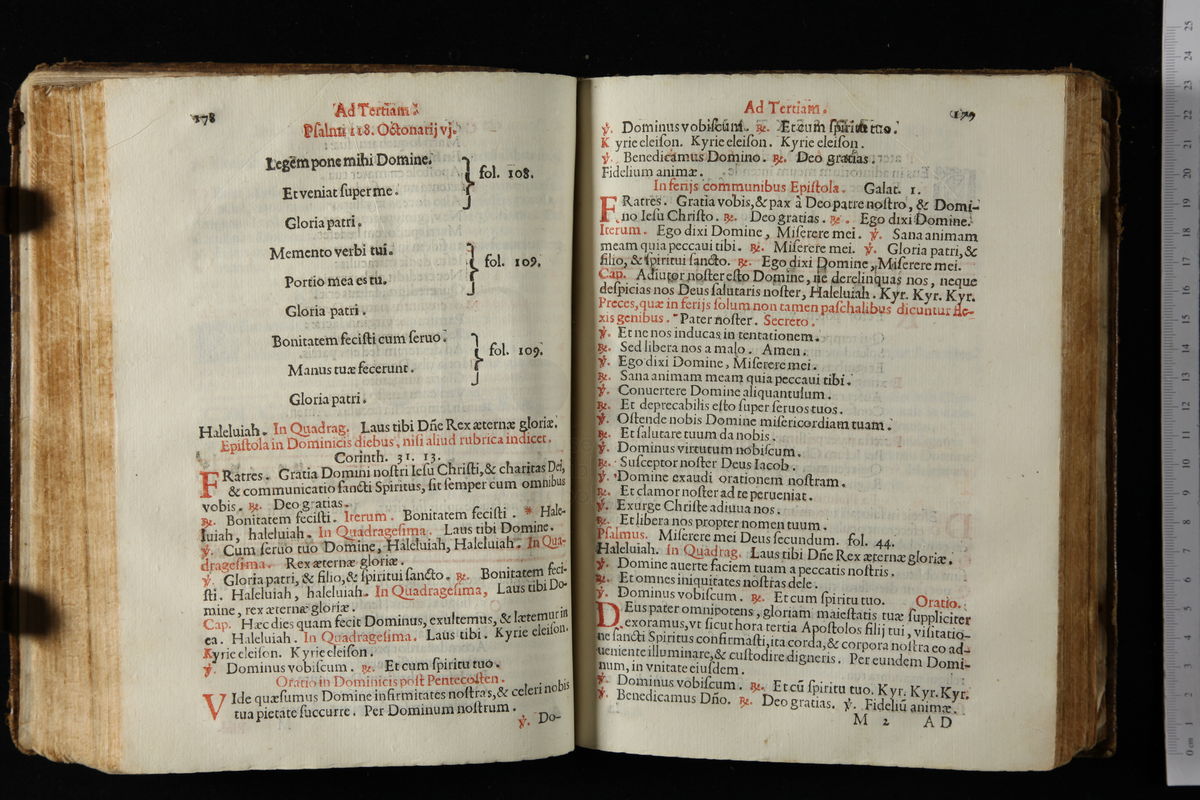 178
Ad Tertiam.
Psalmi 118. Octonarij vj.
Legẽm pone mihi Domine.
Et veniat super me.
} fol. 108.
Gloria patri.
Memento verbi tui.
Portio mea es tu.
} fol. 109.
Gloria patri.
Bonitatem fecisti cum seruo.
Manus tuæ fecerunt.
} fol. 109.
Gloria patri.
Haleluiah. In Quadrag. Laus tibi Dñe Rex æternæ gloriæ.
Epistola in Dominicis diebus, nisi aliud rubrica indicet.
Corinth. 31. 13.
FRatres. Gratia Domini nostri Iesu Christi, & charitas Dei,
& communicatio sancti Spiritus, sit semper cum omnibus
vobis. ℟. Deo gratias.
℟. Bonitatem fecisti. Iterum. Bonitatem fecisti. * Hale-
luiah, haleluiah. In Quadragesima. Laus tibi Domine.
℣. Cum seruo tuo Domine, Haleluiah, Haleluiah. In Qua-
dragesima. Rex æternæ gloriæ.
℣. Gloria patri, & filio, & spiritui sancto. ℟. Bonitatem feci-
sti. Haleluiah, haleluiah. In Quadragesima, Laus tibi Do-
mine, rex æternæ gloriæ.
Cap. Hæc dies quam fecit Dominus, exultemus, & lætemur in
ea. Haleluiah. In Quadragesima. Laus tibi. Kyrie eleison.
Kyrie eleison. Kyrie eleison.
℣. Dominus vobiscum. ℟. Et cum spiritu tuo.
Oratio in Dominicis post Pentecosten.
VIde quæsumus Domine infirmitates nostras, & celeri nobis
tua pietate succurre. Per Dominum nostrum.
℣. Do-
Ad Tertiam.
179
℣. Dominus vobiscum. ℟. Et cum spiritu tuo.
Kyrie eleison. Kyrie eleison. Kyrie eleison.
℣. Benedicamus Domino. ℟. Deo gratias.
Fidelium animæ.
In ferijs communibus Epistola. Galat. 1.
FRatres. Gratia vobis, & pax à Deo patre nostro, & Domi-
no Iesu Christo. ℟. Deo gratias. ℟. Ego dixi Domine.
Iterum. Ego dixi Domine, Miserere mei. ℣. Sana animam
meam quia peccaui tibi. ℟. Miserere mei. ℣. Gloria patri, &
filio, & spiritui sancto. ℟. Ego dixi Domine, Miserere mei.
Cap. Adiutor noster esto Domine, ne derelinquas nos, neque
despicias nos Deus salutaris noster, Haleluiah. Kyr. Kyr. Kyr.
Preces, quæ in ferijs solum non tamen paschalibus dicuntur fle-
xis genibus. Pater noster. Secreto.
℣. Et ne nos inducas in tentationem.
℟. Sed libera nos a malo. Amen.
℣. Ego dixi Domine, Miserere mei.
℟. Sana animam meam quia peccaui tibi.
℣. Conuertere Domine aliquantulum.
℟. Et deprecabilis esto super seruos tuos.
℣. Ostende nobis Domine misericordiam tuam.
℟. Et salutare tuum da nobis.
℣. Dominus virtutum nobiscum.
℟. Susceptor noster Deus Iacob.
℣. Domine exaudi orationem nostram.
℟. Et clamor noster ad te perueniat.
℣. Exurge Christe adiuua nos.
℟. Et libera nos propter nomen tuum.
Psalmus. Miserere mei Deus secundum. fol. 44.
Haleluiah. In Quadrag. Laus tibi Dñe Rex æternæ gloriæ.
℣. Domine auerte faciem tuam a peccatis nostris.
℟. Et omnes iniquitates nostras dele.
℣. Dominus vobiscum. ℟. Et cum spiritu tuo. Oratio.
DEus pater omnipotens, gloriam maiestatis tuæ suppliciter
exoramus, vt sicut hora tertia Apostolos filij tui, visitatio-
ne sancti Spiritus confirmasti, ita corda, & corpora nostra eo ad-
ueniente illuminare, & custodire digneris. Per eundem Domi-
num, in vnitate eiusdem.
℣. Dominus vobiscum. ℟. Et cũ spiritu tuo. Kyr. Kyr. Kyr.
℣. Benedicamus Dño. ℟. Deo gratias. ℣. Fideliũ animæ.
M 2 AD